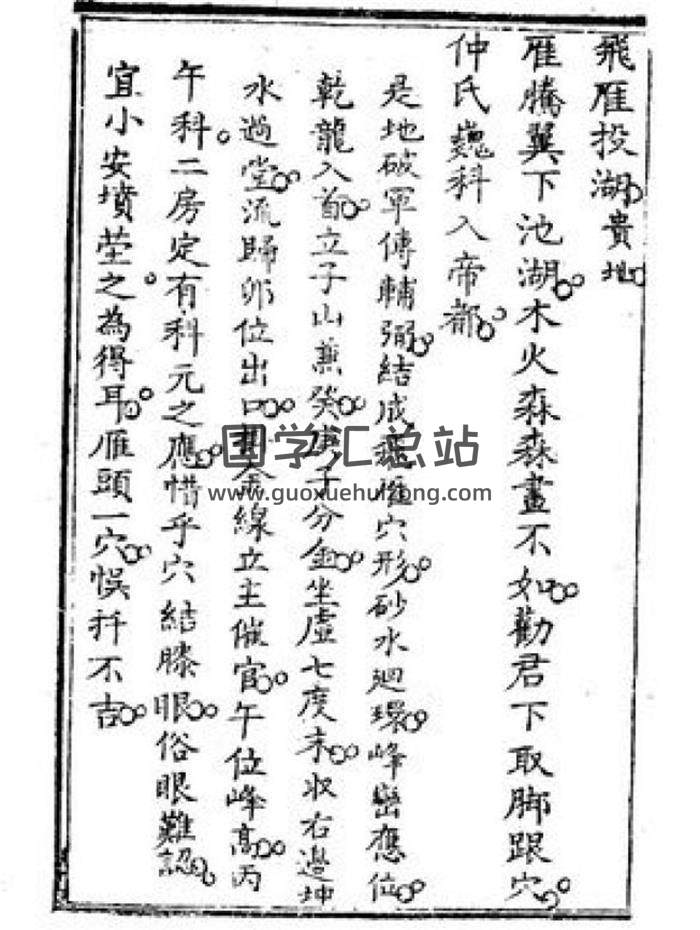 飛雁投湖貴地
雁騰翼下池湖木火森森畫不如勸君下取脚跟穴
仲氏巍科入帝都
是地破軍傳輔弼結成飛雁穴形砂水廻環峰巒應位
乾龍入首立子山兼癸庚子分金坐虛七度末収右邉坤
水過堂流歸卯位出口金線立主催官午位峰髙丙
午科二房定有科元之應惜乎穴結膝眼俗眼難認
宜小安墳塋之為得耳雁頭一穴悞扦不吉
国学汇总站
www.guoxuehuizong.com